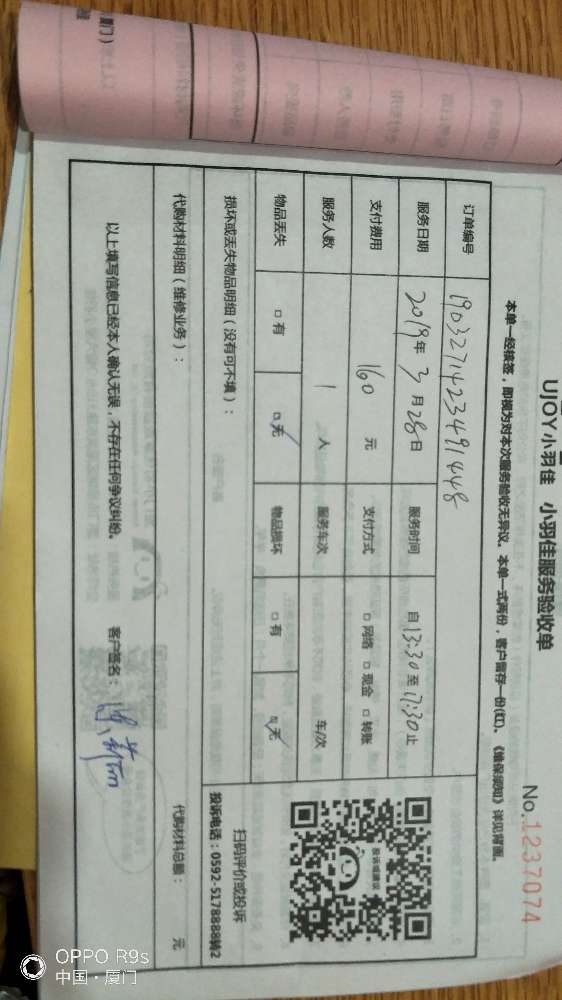 UJOY小羽佳 小羽佳服务验收单
No.1237074
本单一经核签，即视为对本次服务验收无异议。本单一式两份，客户留存一份(红)。《维保须知》详见背面。
订单编号 1903271423491448
服务日期 2019年3月28日 服务时间 自13:30至17:30止
支付费用 160元 支付方式 □网络 □现金 □转账
服务人数 1人 服务车次 车/次
物品丢失 □有 □无 物品损坏 □有 □无
投诉或建议
扫码评价或投诉
投诉电话：0592-5178888转2
损坏或丢失物品明细（没有可不填）：
代购材料明细（维修业务）： 代购材料总额： 元
以上填写信息已经本人确认无误，不存在任何争议纠纷。 客户签名：
OPPO R9s
中国·厦门